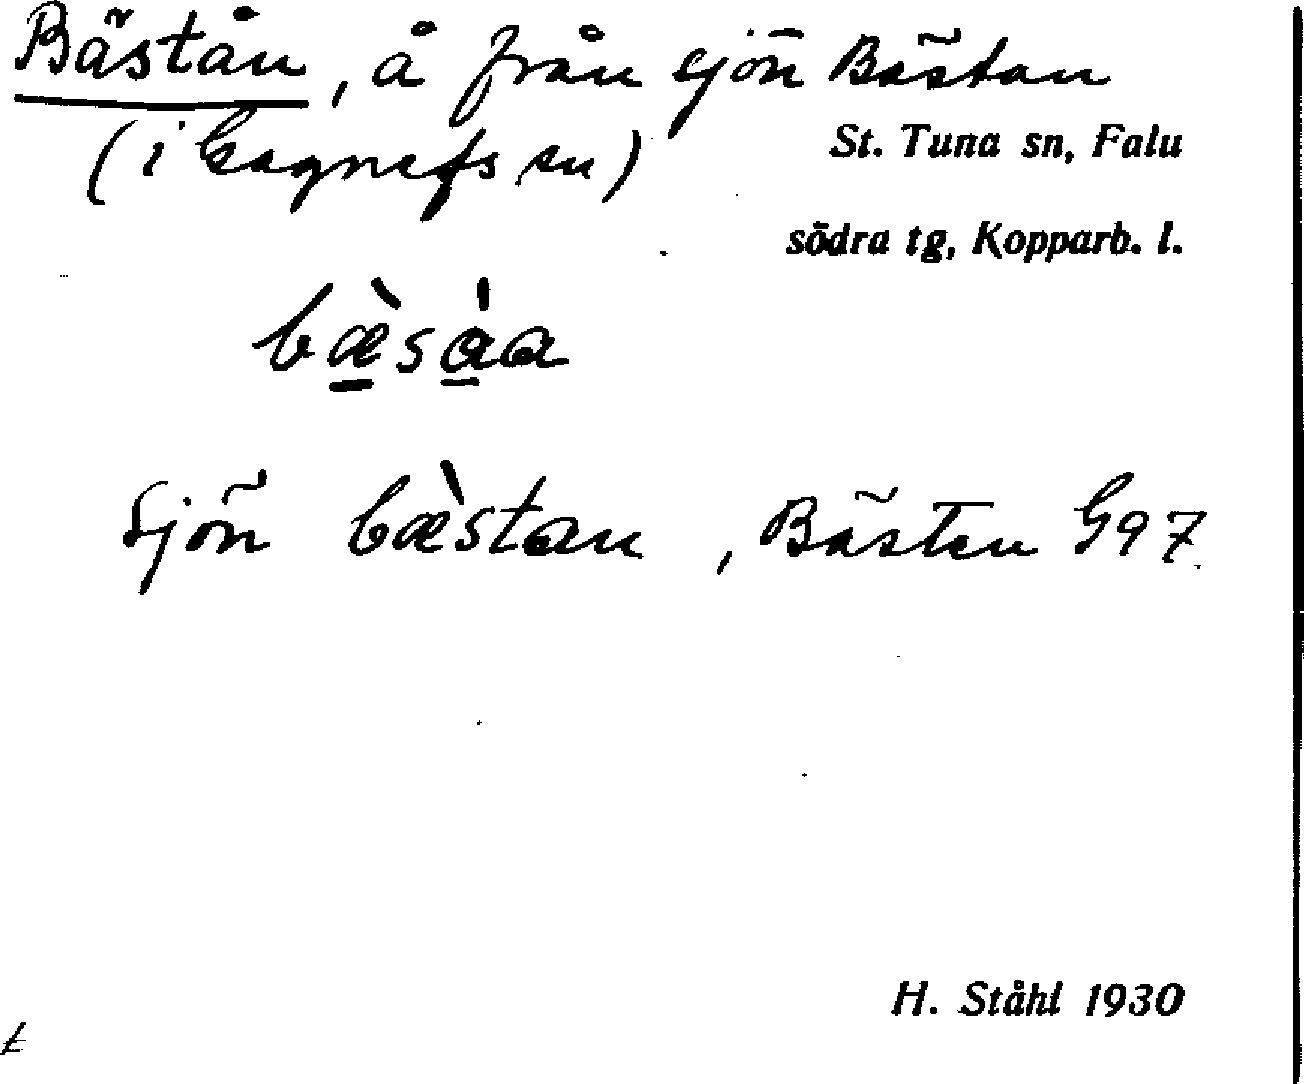 Bästån, å från sjön Bästan
(i Gagnefs sn)
St. Tuna sn, Falu
södra tg, Kopparb. l.
bæ̀sàa
Sjön bæ̀stan, Bästen G97
H. Ståhl 1930